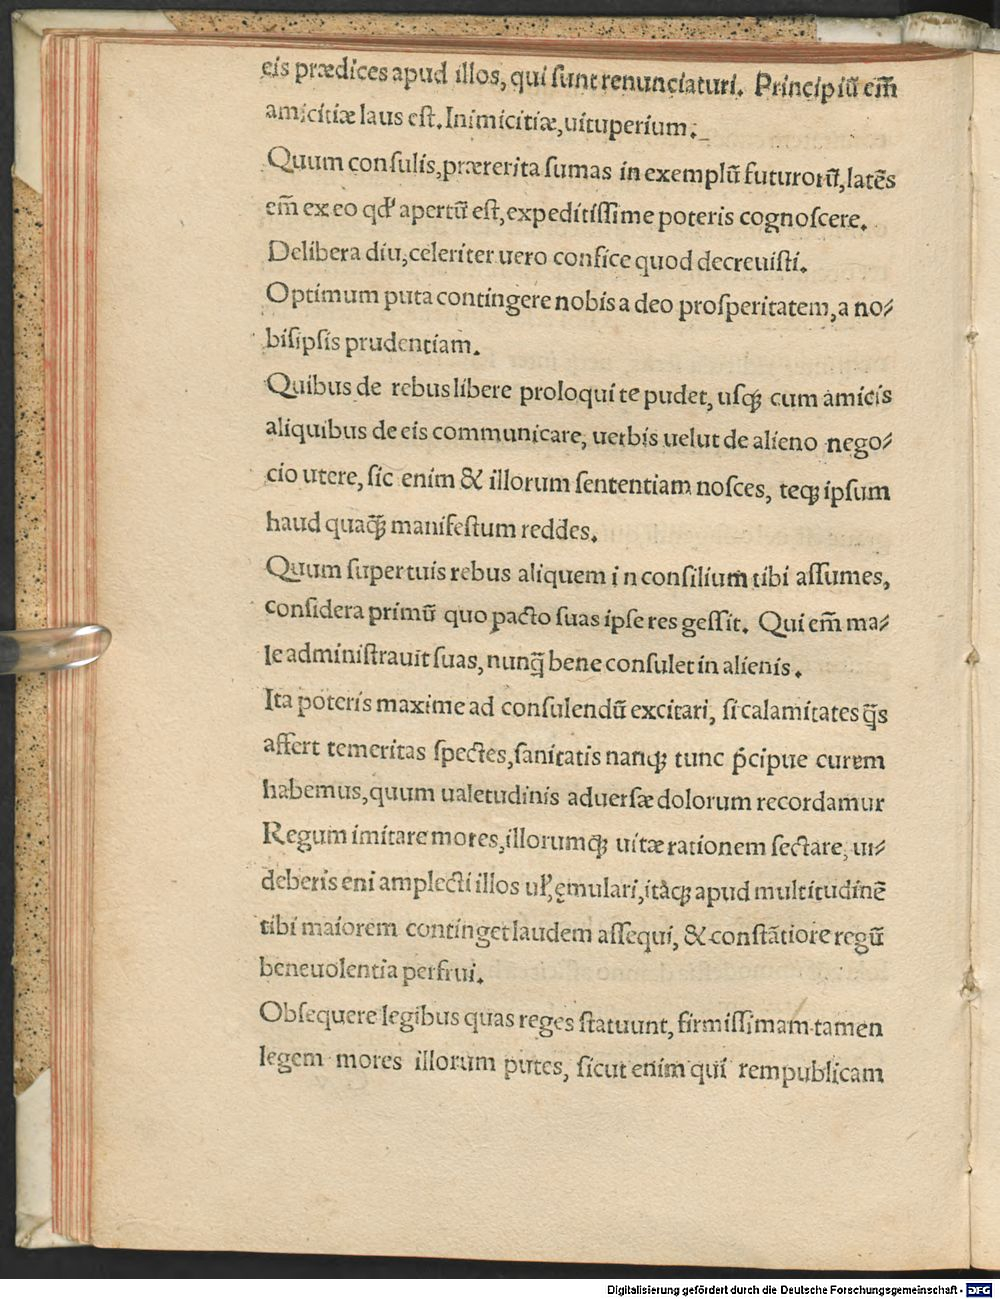 eis prædices apud illos, qui ſunt renunciaturi. Principiū em̄
amicitiæ laus eſt. Inimicitiæ, uituperium.
Quum conſulis, prærerita ſumas in exemplū futurorū, latēs
em̄ ex eo qđ apertū eſt, expeditiſſime poteris cognoſcere.
Delibera diu, celeriter uero confice quod decreuiſti.
Optimum puta contingere nobis a deo proſperitatem, a no⸗
biſipſis prudentiam.
Quibus de rebus libere proloqui te pudet, uſqꝫ cum amicis
aliquibus de eis communicare, uerbis uelut de alieno nego⸗
cio utere, ſic enim & illorum ſententiam noſces, teqꝫ ipſum
haud quaqꝫ̄ manifeſtum reddes.
Quum ſuper tuis rebus aliquem in conſilium tibi aſſumes,
conſidera primū quo pacto ſuas ipſe res geſſit. Qui em̄ ma⸗
le adminiſtrauit ſuas, nunq̄ bene conſulet in alienis.
Ita poteris maxime ad conſulendū excitari, ſi calamitates q̄s
affert temeritas ſpectes, ſanitatis nanqꝫ tunc p̄cipue curem
habemus, quum ualetudinis aduerſæ dolorum recordamur
Regum imitare mores, illorumqꝫ uitæ rationem ſectare, ui⸗
deberis eni amplecti illos ul̓, ęmulari, itaqꝫ apud multitudinē
tibi maiorem continget laudem aſſequi, & conſtātiore regū
beneuolentia perfrui.
Obſequere legibus quas reges ſtatuunt, firmiſſimam tamen
legem mores illorum putes, ſicut enim qui rempublicam
Digitalisierung gefördert durch die Deutsche Forschungsgemeinschaft - DFG